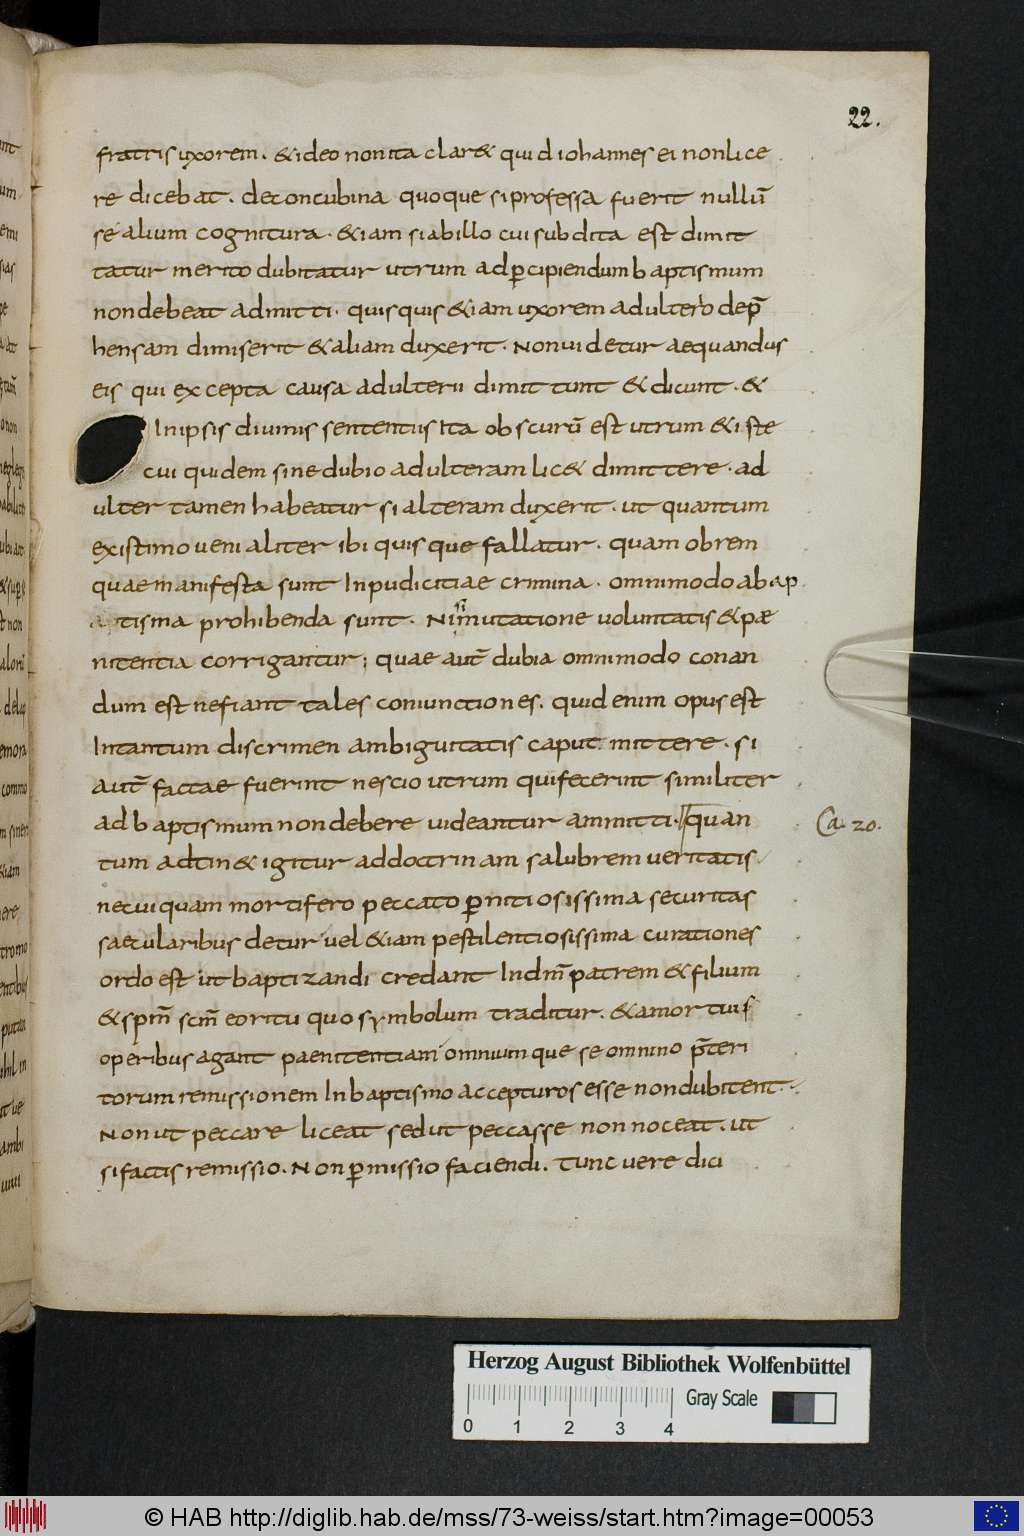 22.
fratris uxorem. & ideo non ita clar& quid iohannes ei non lice
re dicebat. de concubina quoque si professa fuerit nullū
se alium cognitura. &iam si ab illo cui subdita est dimit
tatur merito dubitatur utrum ad p̱cipiendum baptismum
non debeat admitti. quisquis &iam uxorem adultero dep̄
hensam dimiserit & aliam duxerit. Non uidetur aequandus
eis qui excepta causa adulterii dimittunt & dicunt. &
In ipsis diuinis sententiis Ita obscurū est utrum & iste
cui quidem sine dubio adulteram lic& dimittere. ad
ulter tamen habeatur si alteram duxerit. ut quantum
existimo ueni aliter ibi quisque fallatur. quam obrem
quae manifesta sunt Inpudicitiae crimina. omnimodo a bap
tisma prohibenda sunt. Nī mutatione uoluntatis & pæ
nitentia corrigantur; quae aut̄ dubia omnimodo conan
dum est ne fiant tales coniunctiones. quid enim opus est
Intantum discrimen ambiguitatis caput mittere. si
aut̄ factae fuerint nescio utrum qui fecerint similiter
ad baptismum non debere uideantur ammitti. quan
Ca 20.
tum adtin& igitur ad doctrinam salubrem ueritatis
necuiquam mortifero peccato p̱nitiosissima securitas
saecularibus detur uel &iam pestilentiosissima curationes
ordo est ut baptizandi credant In dm̄ patrem & filium
& spm̄ scm̄ eo ritu quo symbolum traditur. & a mortuis
operibus agant paenitentiam omniumque se omnino p̄teri
torum remissionem In baptismo accepturos esse non dubitent.
Non ut peccare liceat sed ut peccasse non noceat. ut
si factis remissio. Non p̱missio faciendi. tunc uere dici
Herzog August Bibliothek Wolfenbüttel
Gray Scale
0 1 2 3 4
© HAB http://diglib.hab.de/mss/73-weiss/start.htm?image=00053